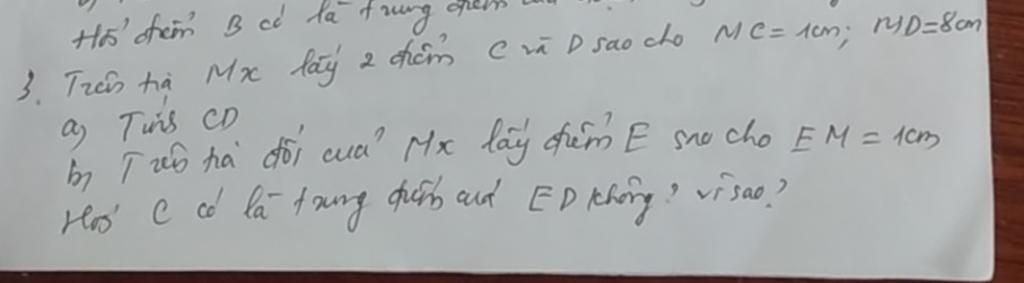 Hỏi điểm B có là trung điểm
3. Trên tia Mx lấy 2 điểm C và D sao cho MC = 1cm; MD = 8cm
a) Tính CD
b) Trên tia đối của Mx lấy điểm E sao cho EM = 1cm
Hỏi C có là trung điểm của ED không? vì sao?